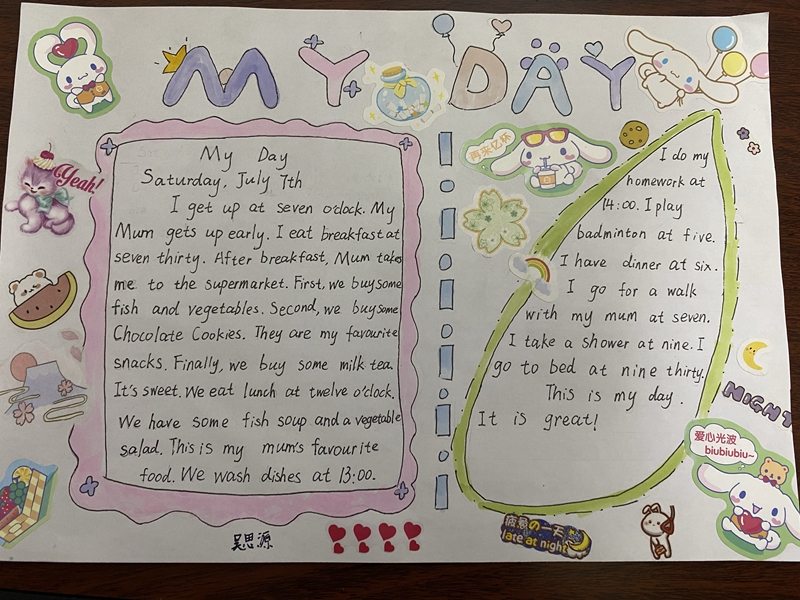 MY DAY
My Day
Saturday, July 7th
I get up at seven o'clock. My
Mum gets up early. I eat breakfast at
seven thirty. After breakfast, Mum takes
me to the supermarket. First, we buy some
fish and vegetables. Second, we buy some
Chocolate Cookies. They are my favourite
snacks. Finally, we buy some milk tea.
It's sweet. We eat lunch at twelve o'clock.
We have some fish soup and a vegetable
salad. This is my mum's favourite
food. We wash dishes at 13:00.
I do my
homework at
14:00. I play
badminton at five.
I have dinner at six.
I go for a walk
with my mum at seven.
I take a shower at nine. I
go to bed at nine thirty.
This is my day.
It is great!
Yeah!
再来亿杯
NIGHT
爱心光波
biubiubiu~
疲惫の一天
late at night
吴思源